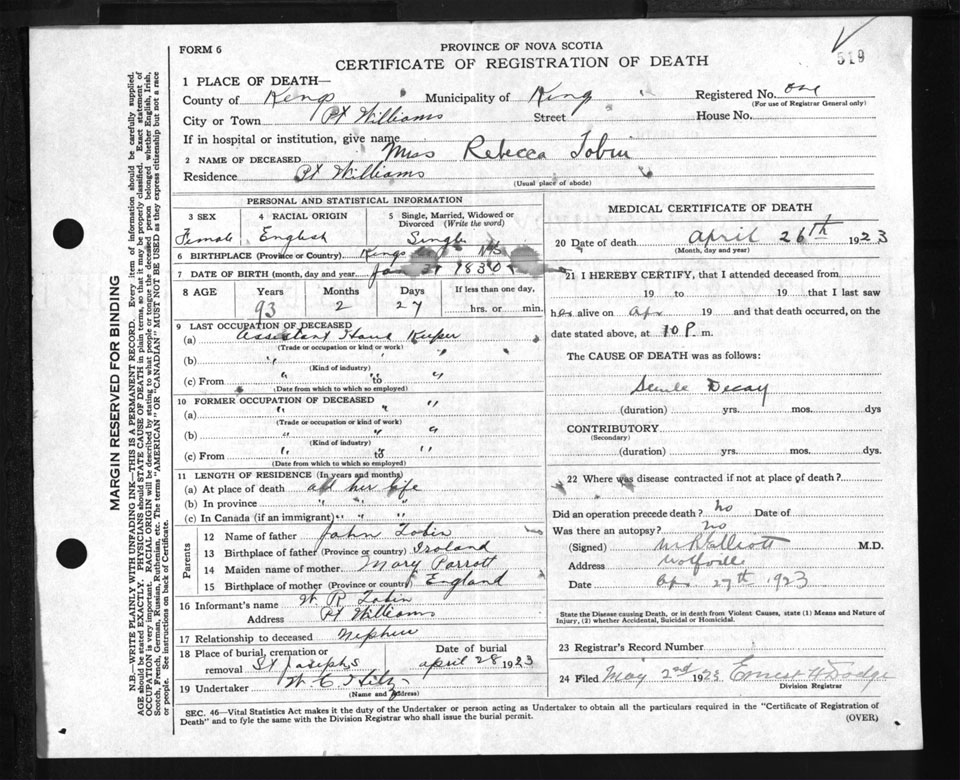 519
FORM 6
PROVINCE OF NOVA SCOTIA
CERTIFICATE OF REGISTRATION OF DEATH
1 PLACE OF DEATH—
County of Kings Municipality of Kings Registered No. one
(For use of Registrar General only)
City or Town Pt Williams Street House No.
If in hospital or institution, give name
2 NAME OF DECEASED Miss Rebecca Tobin
Residence Pt Williams
(Usual place of abode)
PERSONAL AND STATISTICAL INFORMATION
3 SEX 4 RACIAL ORIGIN 5 Single, Married, Widowed or Divorced (Write the word)
Female English Single
6 BIRTHPLACE (Province or Country) Kings NS
7 DATE OF BIRTH (month, day and year) Jan 1830
8 AGE Years Months Days If less than one day,
93 2 27 hrs. or min.
9 LAST OCCUPATION OF DECEASED
(a) Assistant House Keeper
(Trade or occupation or kind or work)
(b) " " "
(Kind of industry)
(c) From " to "
(Date from which to which so employed)
10 FORMER OCCUPATION OF DECEASED "
(a) "
(Trade or occupation or kind of work)
(b) " " "
(Kind of industry)
(c) From " to "
(Date from which to which so employed)
11 LENGTH OF RESIDENCE (In years and months)
(a) At place of death all her life
(b) In province " " "
(c) In Canada (if an immigrant) " " "
Parents
12 Name of father John Tobin
13 Birthplace of father (Province or country) Ireland
14 Maiden name of mother Mary Parrott
15 Birthplace of mother (Province or country) England
16 Informant's name W R Tobin
Address Pt Williams
17 Relationship to deceased Nephew
18 Place of burial, cremation or removal St Josephs
Date of burial
april 28 1923
19 Undertaker
(Name and address)
MEDICAL CERTIFICATE OF DEATH
20 Date of death april 26th 1923
(Month, day and year)
21 I HEREBY CERTIFY, that I attended deceased from
19 to 19 that I last saw
her alive on Apr 19 and that death occurred, on the
date stated above, at 10 P. m.
The CAUSE OF DEATH was as follows:
Senile Decay
(duration) yrs. mos. dys
CONTRIBUTORY
(Secondary)
(duration) yrs. mos. dys.
22 Where was disease contracted if not at place of death?
Did an operation precede death? no Date of
Was there an autopsy? no
(Signed) M.D.
Address Wolfville
Date Apr 27th 1923
State the Disease causing Death, or in death from Violent Causes, state (1) Means and Nature of
Injury, (2) whether Accidental, Suicidal or Homicidal.
23 Registrar's Record Number
24 Filed May 2nd 1923 Ernest H Dodge
Division Registrar
SEC. 46—Vital Statistics Act makes it the duty of the Undertaker or person acting as Undertaker to obtain all the particulars required in the "Certificate of Registration of
Death" and to fyle the same with the Division Registrar who shall issue the burial permit.
(OVER)
MARGIN RESERVED FOR BINDING
N.B.—WRITE PLAINLY WITH UNFADING INK—THIS IS A PERMANENT RECORD. Every item of information should be carefully supplied.
AGE should be stated EXACTLY. PHYSICIANS should STATE CAUSE OF DEATH in plain terms, so that it may be properly classified. Exact statement of
OCCUPATION is very important. RACIAL ORIGIN will be described by stating to what people or tongue the deceased person belonged whether English, Irish,
Scotch, French, German, Russian, Ruthenian, etc. The terms "AMERICAN" OR "CANADIAN" MUST NOT BE USED as they express citizenship but not a race
or people. See instructions on back of Certificate.